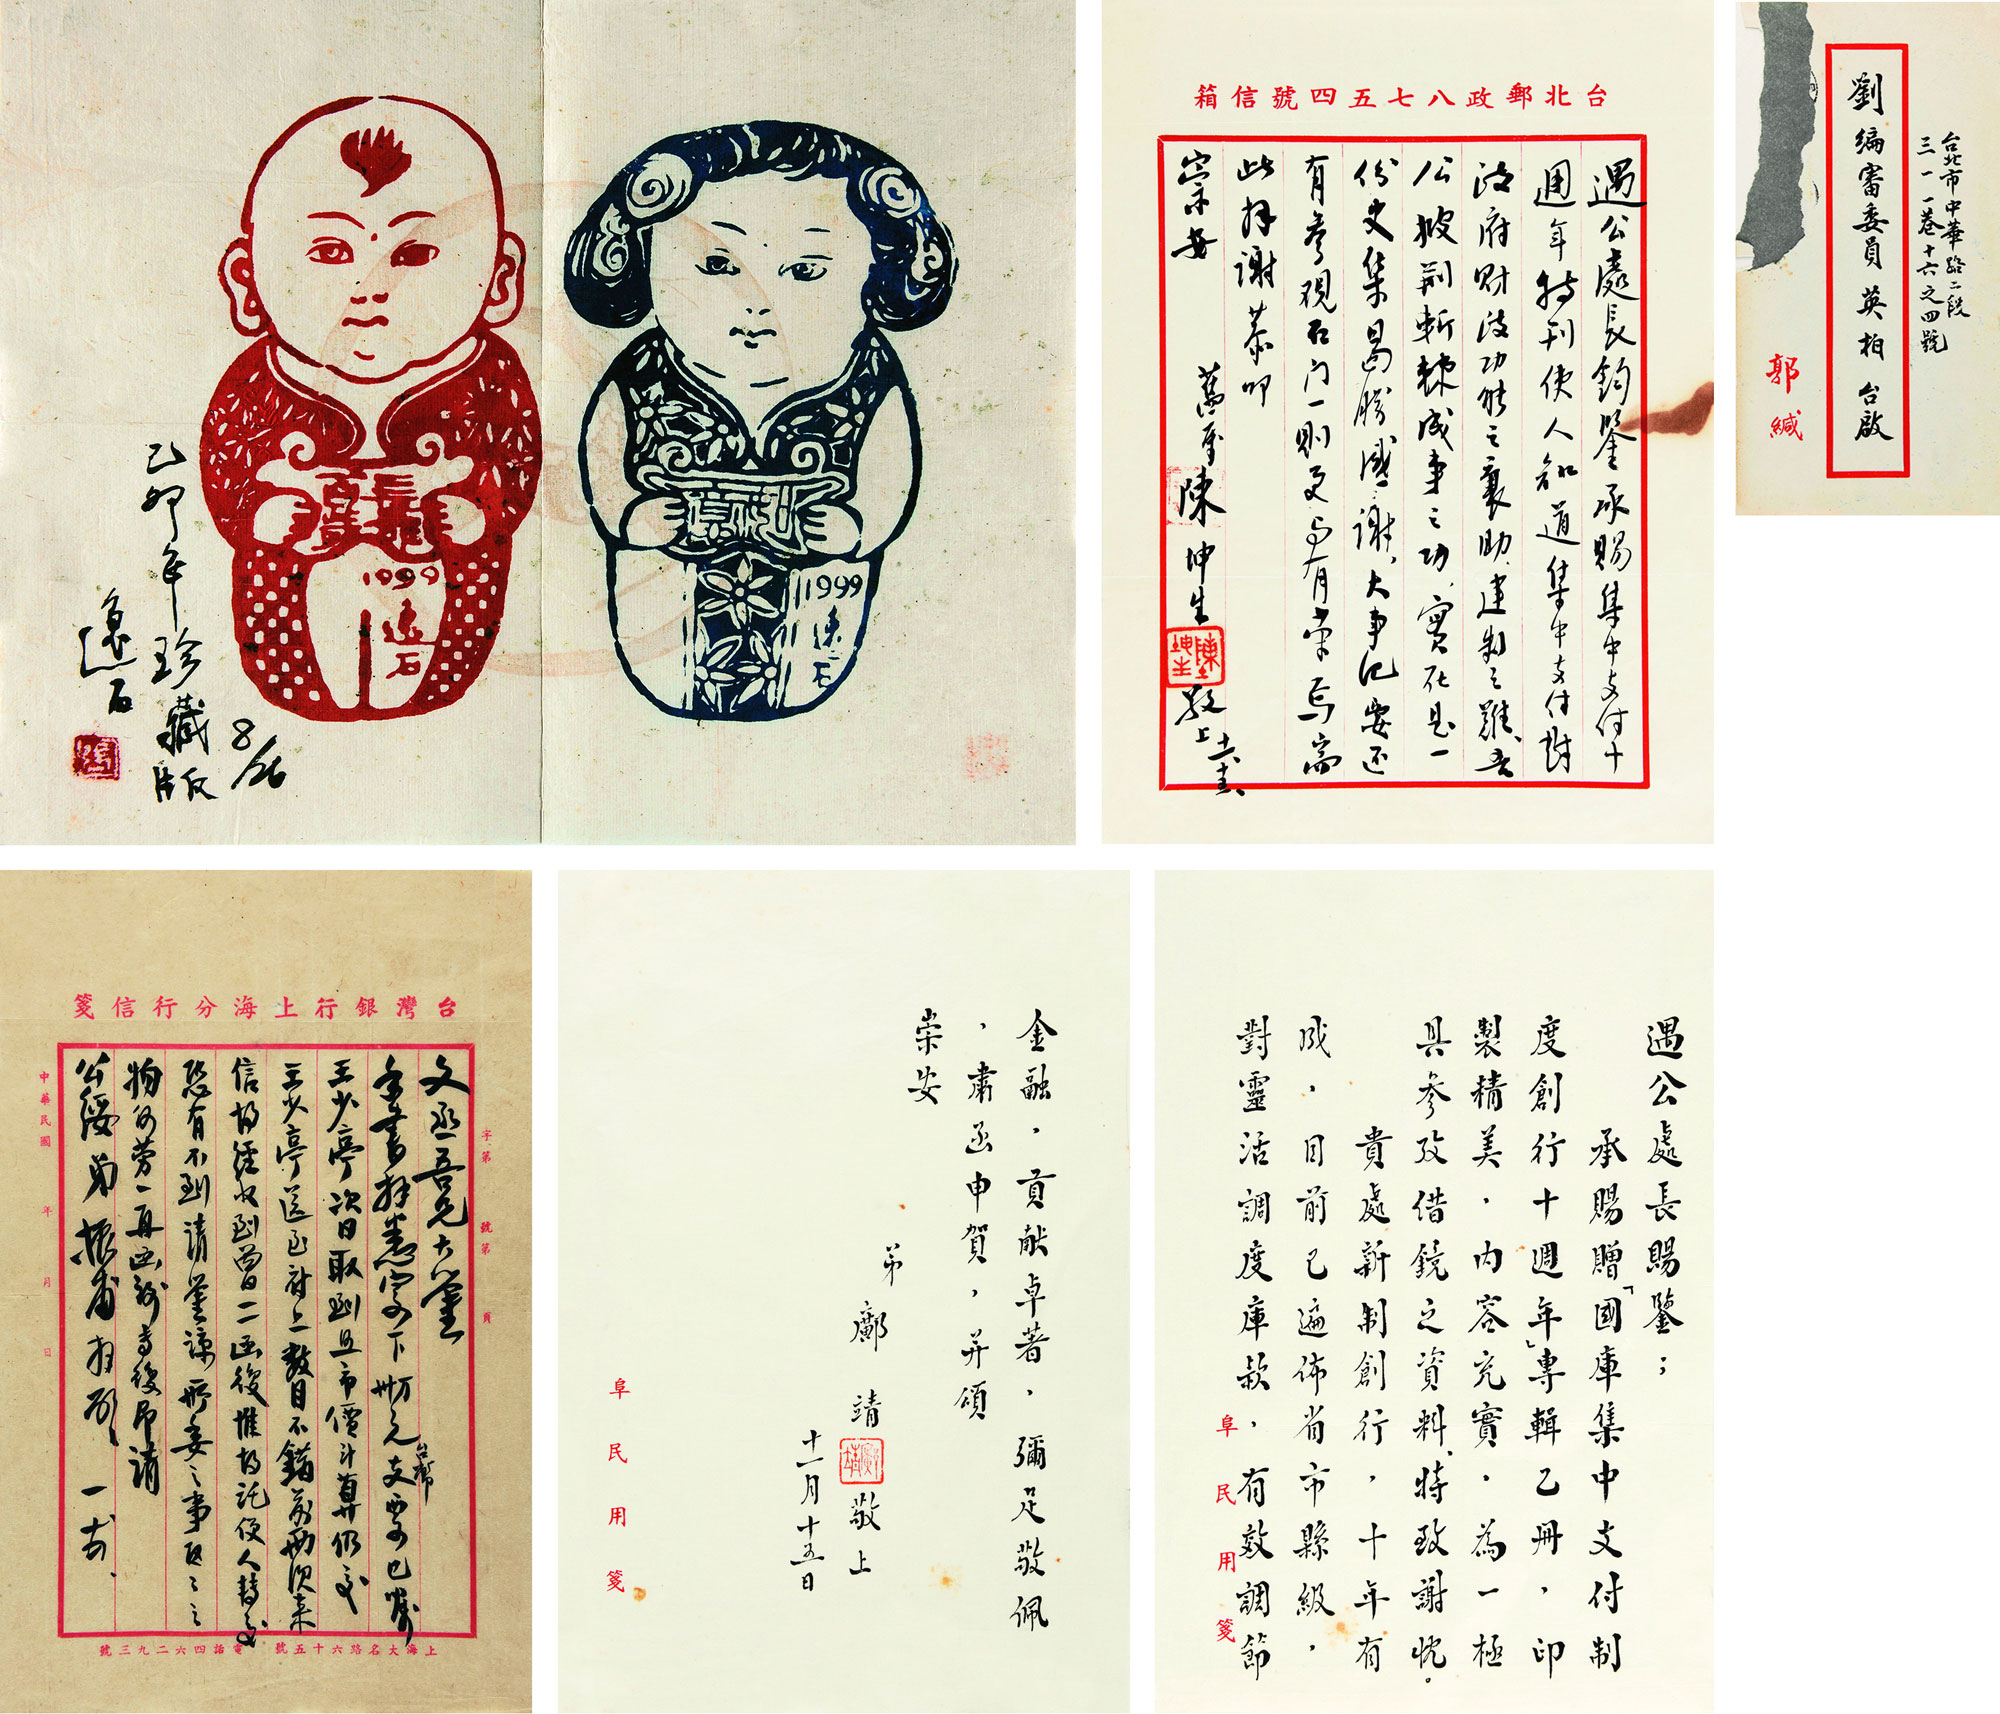 己卯年珍藏版
8/26
遠石
1999
遠石
1999
遠石
台北郵政八七五四號信箱
遇公處長鈞鑒承賜集中支付十
週年特刊使人知道集中支付對
政府財政功能之襄助建制之難吾
公披荊斬棘成事之功實在是一
份史集曷勝感謝大事記要還
有參觀石門一則更與有榮焉耑
此拜謝恭叩
崇安
舊屬陳坤生敬上
陳坤生
台北市中華路二段
三一一巷十六之四號
劉編審委員英柏台啟
郭緘
台灣銀行上海分行信箋
字第 號第 頁
文丞吾兄大鑒
台幣
王少亭次日取到且市價計算仍交
王少亭送已府上數目不錯前兩次來
恐有不到請鑒諒所委之事
公綏弟振甫
中華民國 年 月 日
上海大名路六十五號 電話四六二九三號
金融,貢献卓著,彌足敬佩
,肅函申賀,并頌
崇安
弟鄺靖敬上
鄺靖
十一月十五日
阜民用箋
遇公處長賜鑒;
承賜贈「國庫集中支付制
度創行十週年」專輯乙冊,印
製精美,內容充實,為一極
具參攷借鏡之資料,特致謝忱。
貴處新制創行,十年有
成,目前已遍佈省市縣級,
對靈活調度庫款,有效調節
阜民用箋